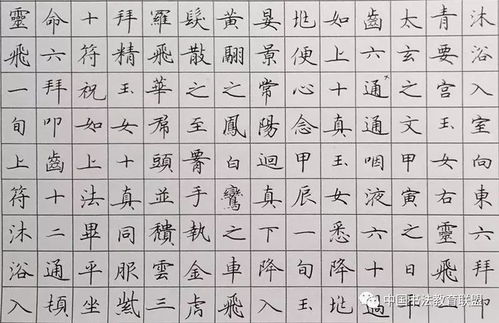 沐浴入室向東六拜叩
青要宮玉女右靈飛
太玄之文甲寅之日
齒六通通咽液六十過
如上十真玉女悉降地
地便心念甲辰一旬玉
晏景常陽迴真下降入
黃翩之鳳白鸞之車飛
髮散之至腰手執金虎
羅飛華帬頭並穨雲三
拜精玉女十真同服紫
十符祝如上法畢平坐
命六拜叩齒十二通頓
靈飛一旬上符沐浴入
中国书法教育联盟